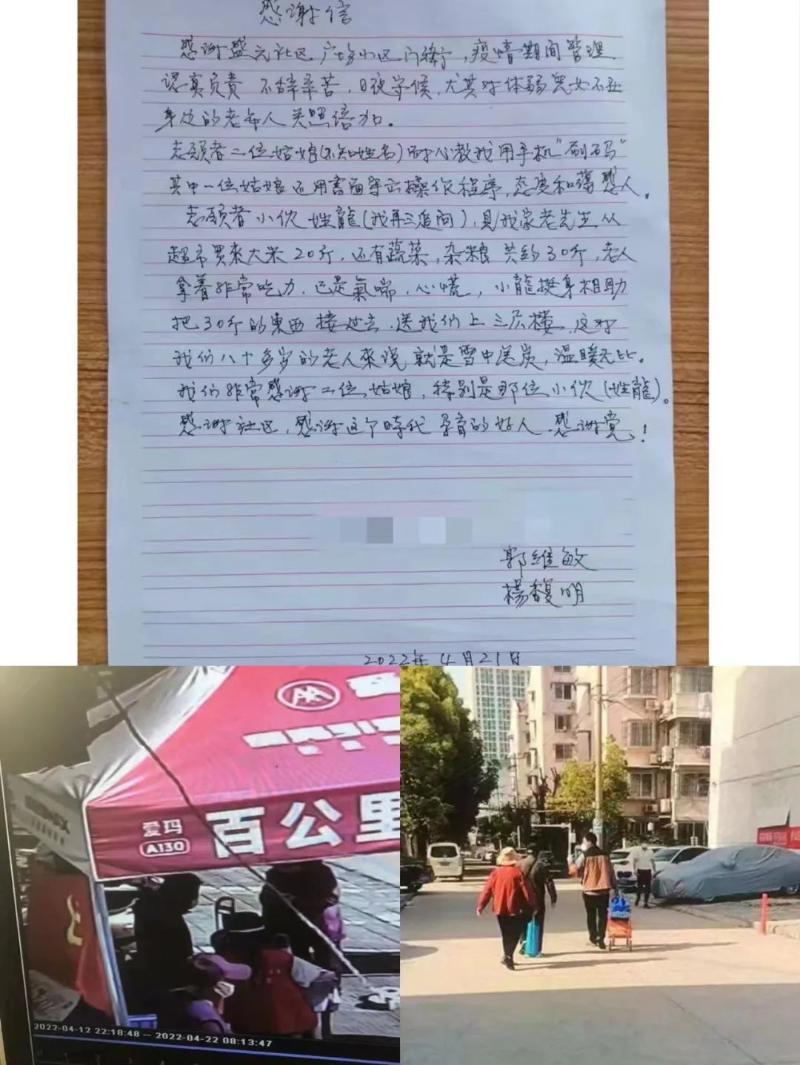 感谢信
感谢盛元社区广场小区门衛，疫情期间管理
認真负责 不辞辛苦，日夜守候，尤其对体弱児女不在
身边的老年人关照倍加。
志願者二位姑娘(不知姓名)耐心教我用手机"刷码"
其中一位姑娘还用書面写出操作程序，态度和蔼感人。
志願者小伙姓龍(我再三追问)，見我家老先生从
超市買來大米20斤，还有蔬菜，杂粮 共约30斤，老人
拿着非常吃力，已是氣喘，心慌，小龍挺身相助
把30斤的東西接过去，送我们上三层樓，这对
我们八十多岁的老人來说就是雪中送炭，温暖无比。
我们非常感谢二位姑娘，特别是那位小伙(姓龍)。
感谢社区，感谢这个時代孕育的好人 感谢党！
郭維敏
楊馥明
2022年4月21日
爱玛
A130
百公里
2022-04-12 22:18:48 — 2022-04-22 08:13:47